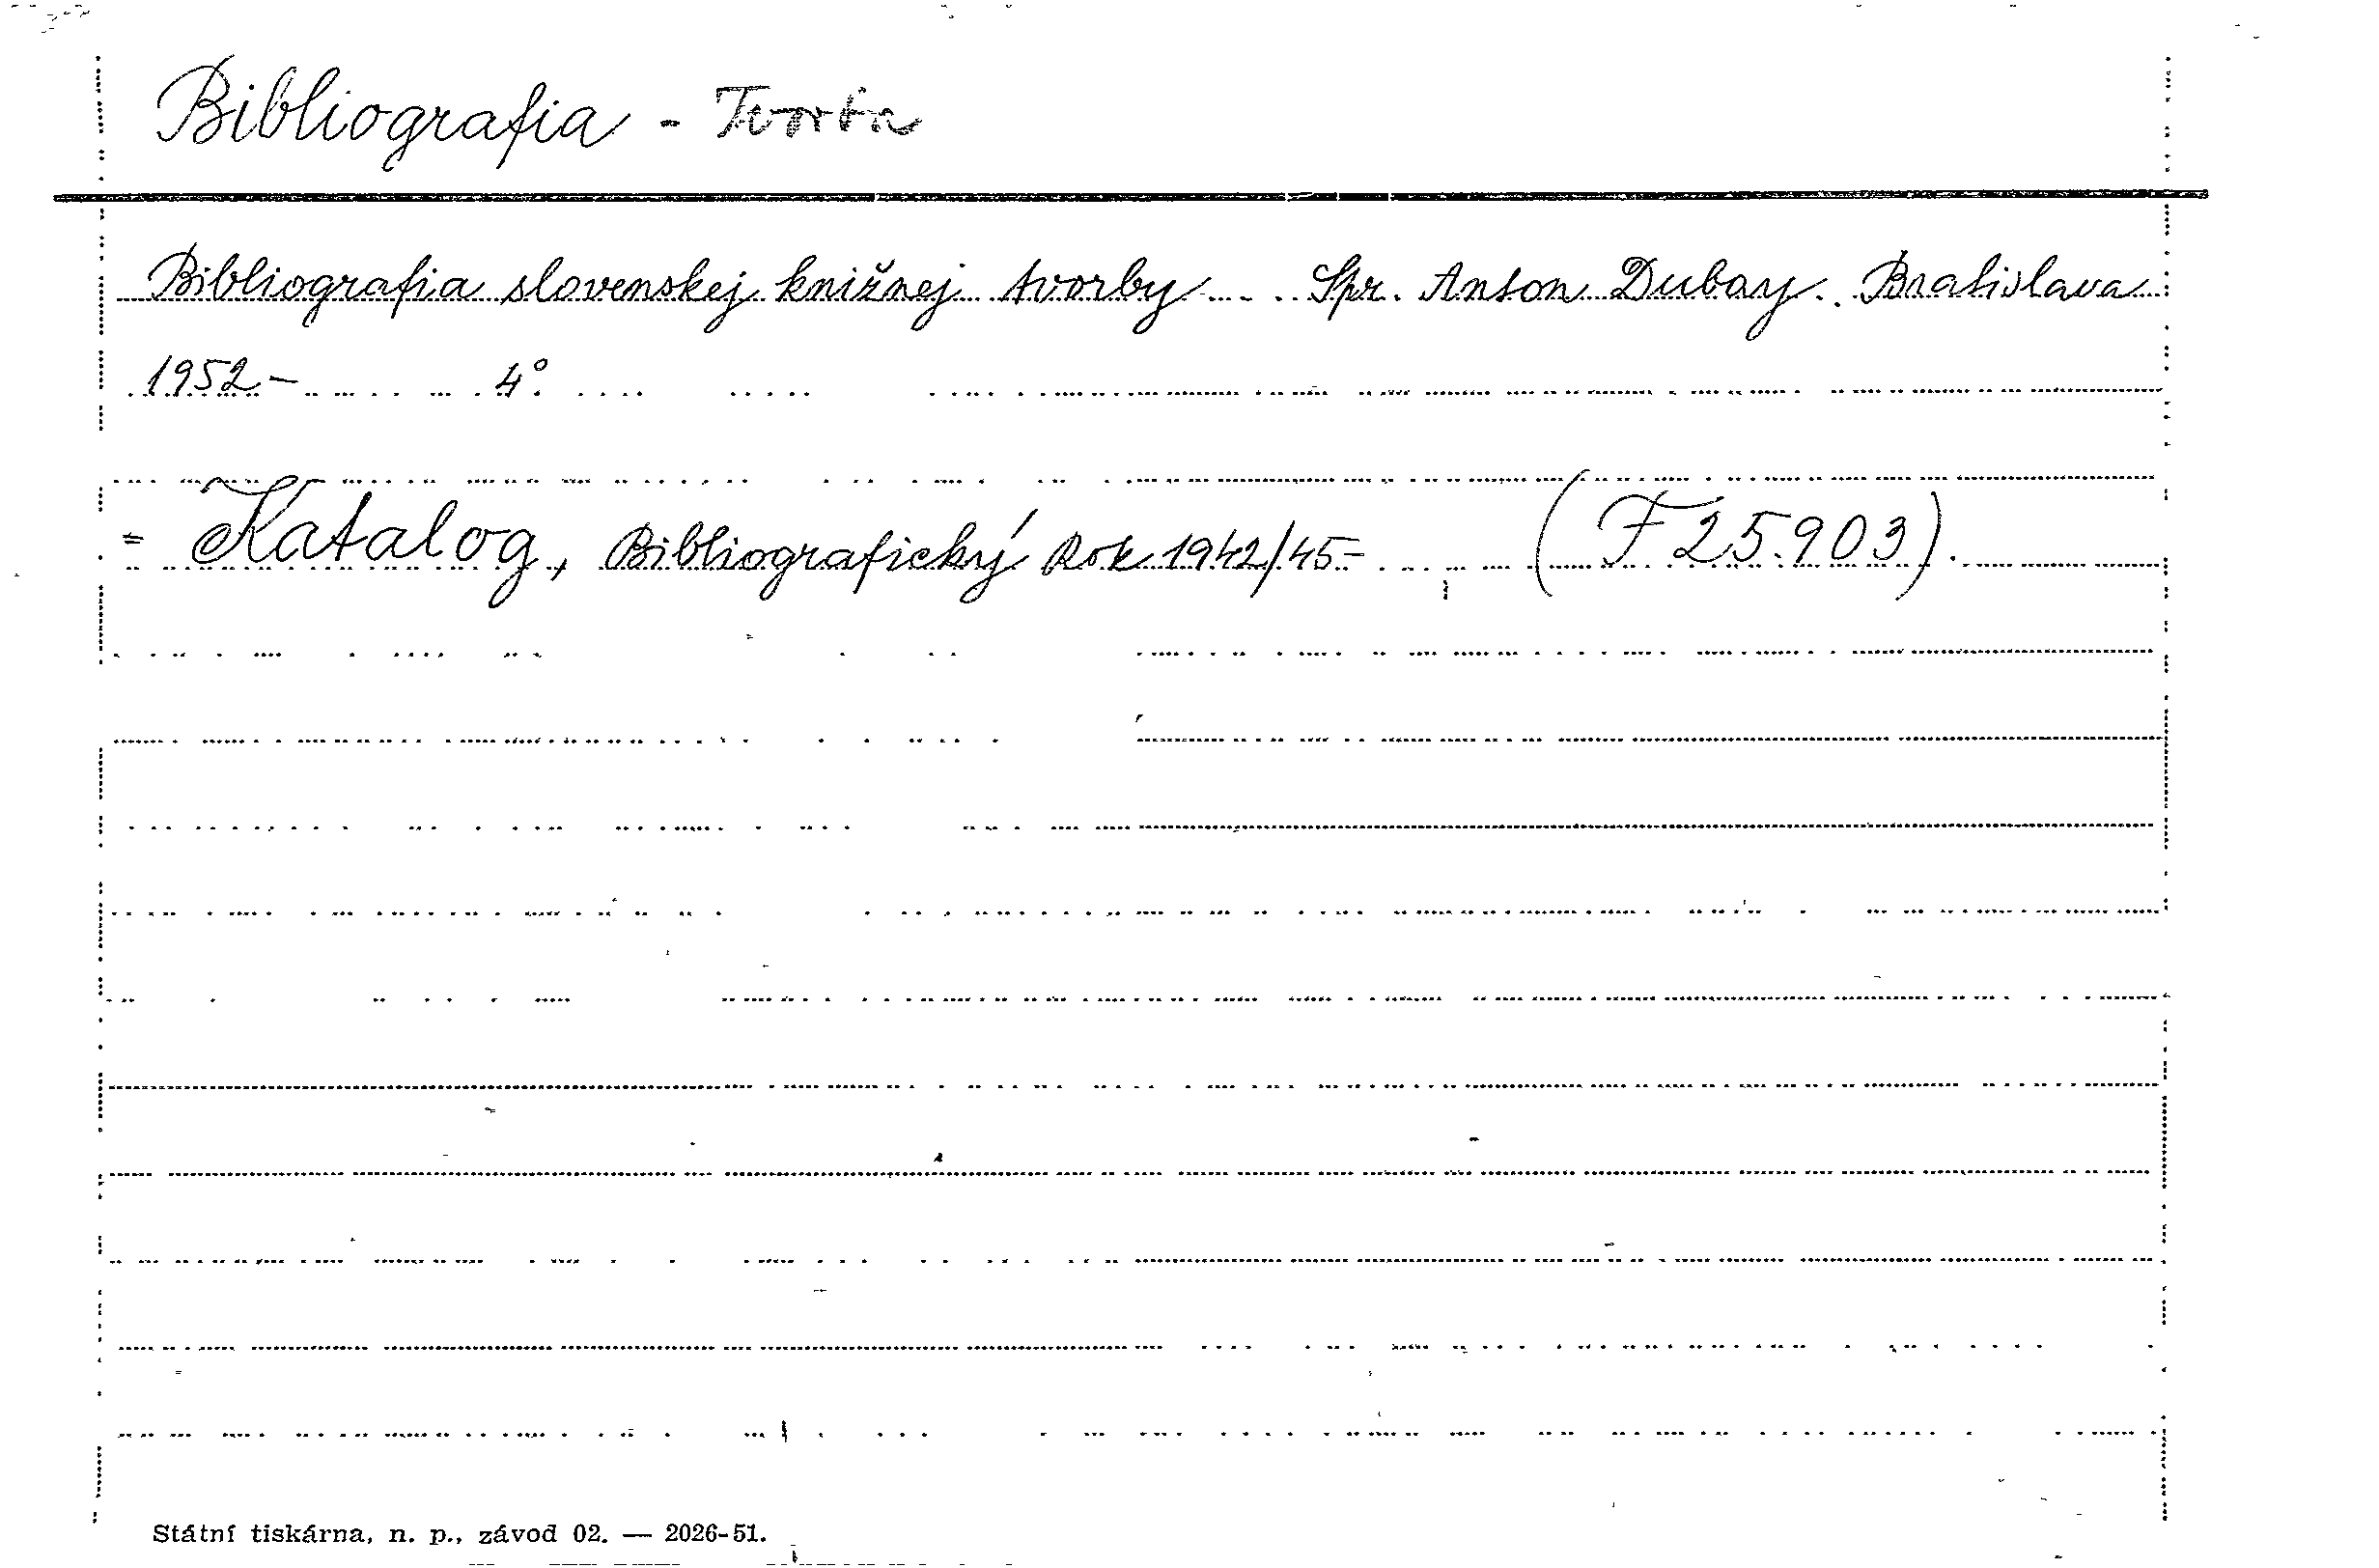 Bibliografia - Tvorba
Bibliografia slovenskej knižnej tvorby... Spr. Anton Dubay. Bratislava
1952- 4°.
= Katalog, Bibliografický Rok 1942/45- (F 25.903).
Státní tiskárna, n. p., závod 02. — 2026-51.